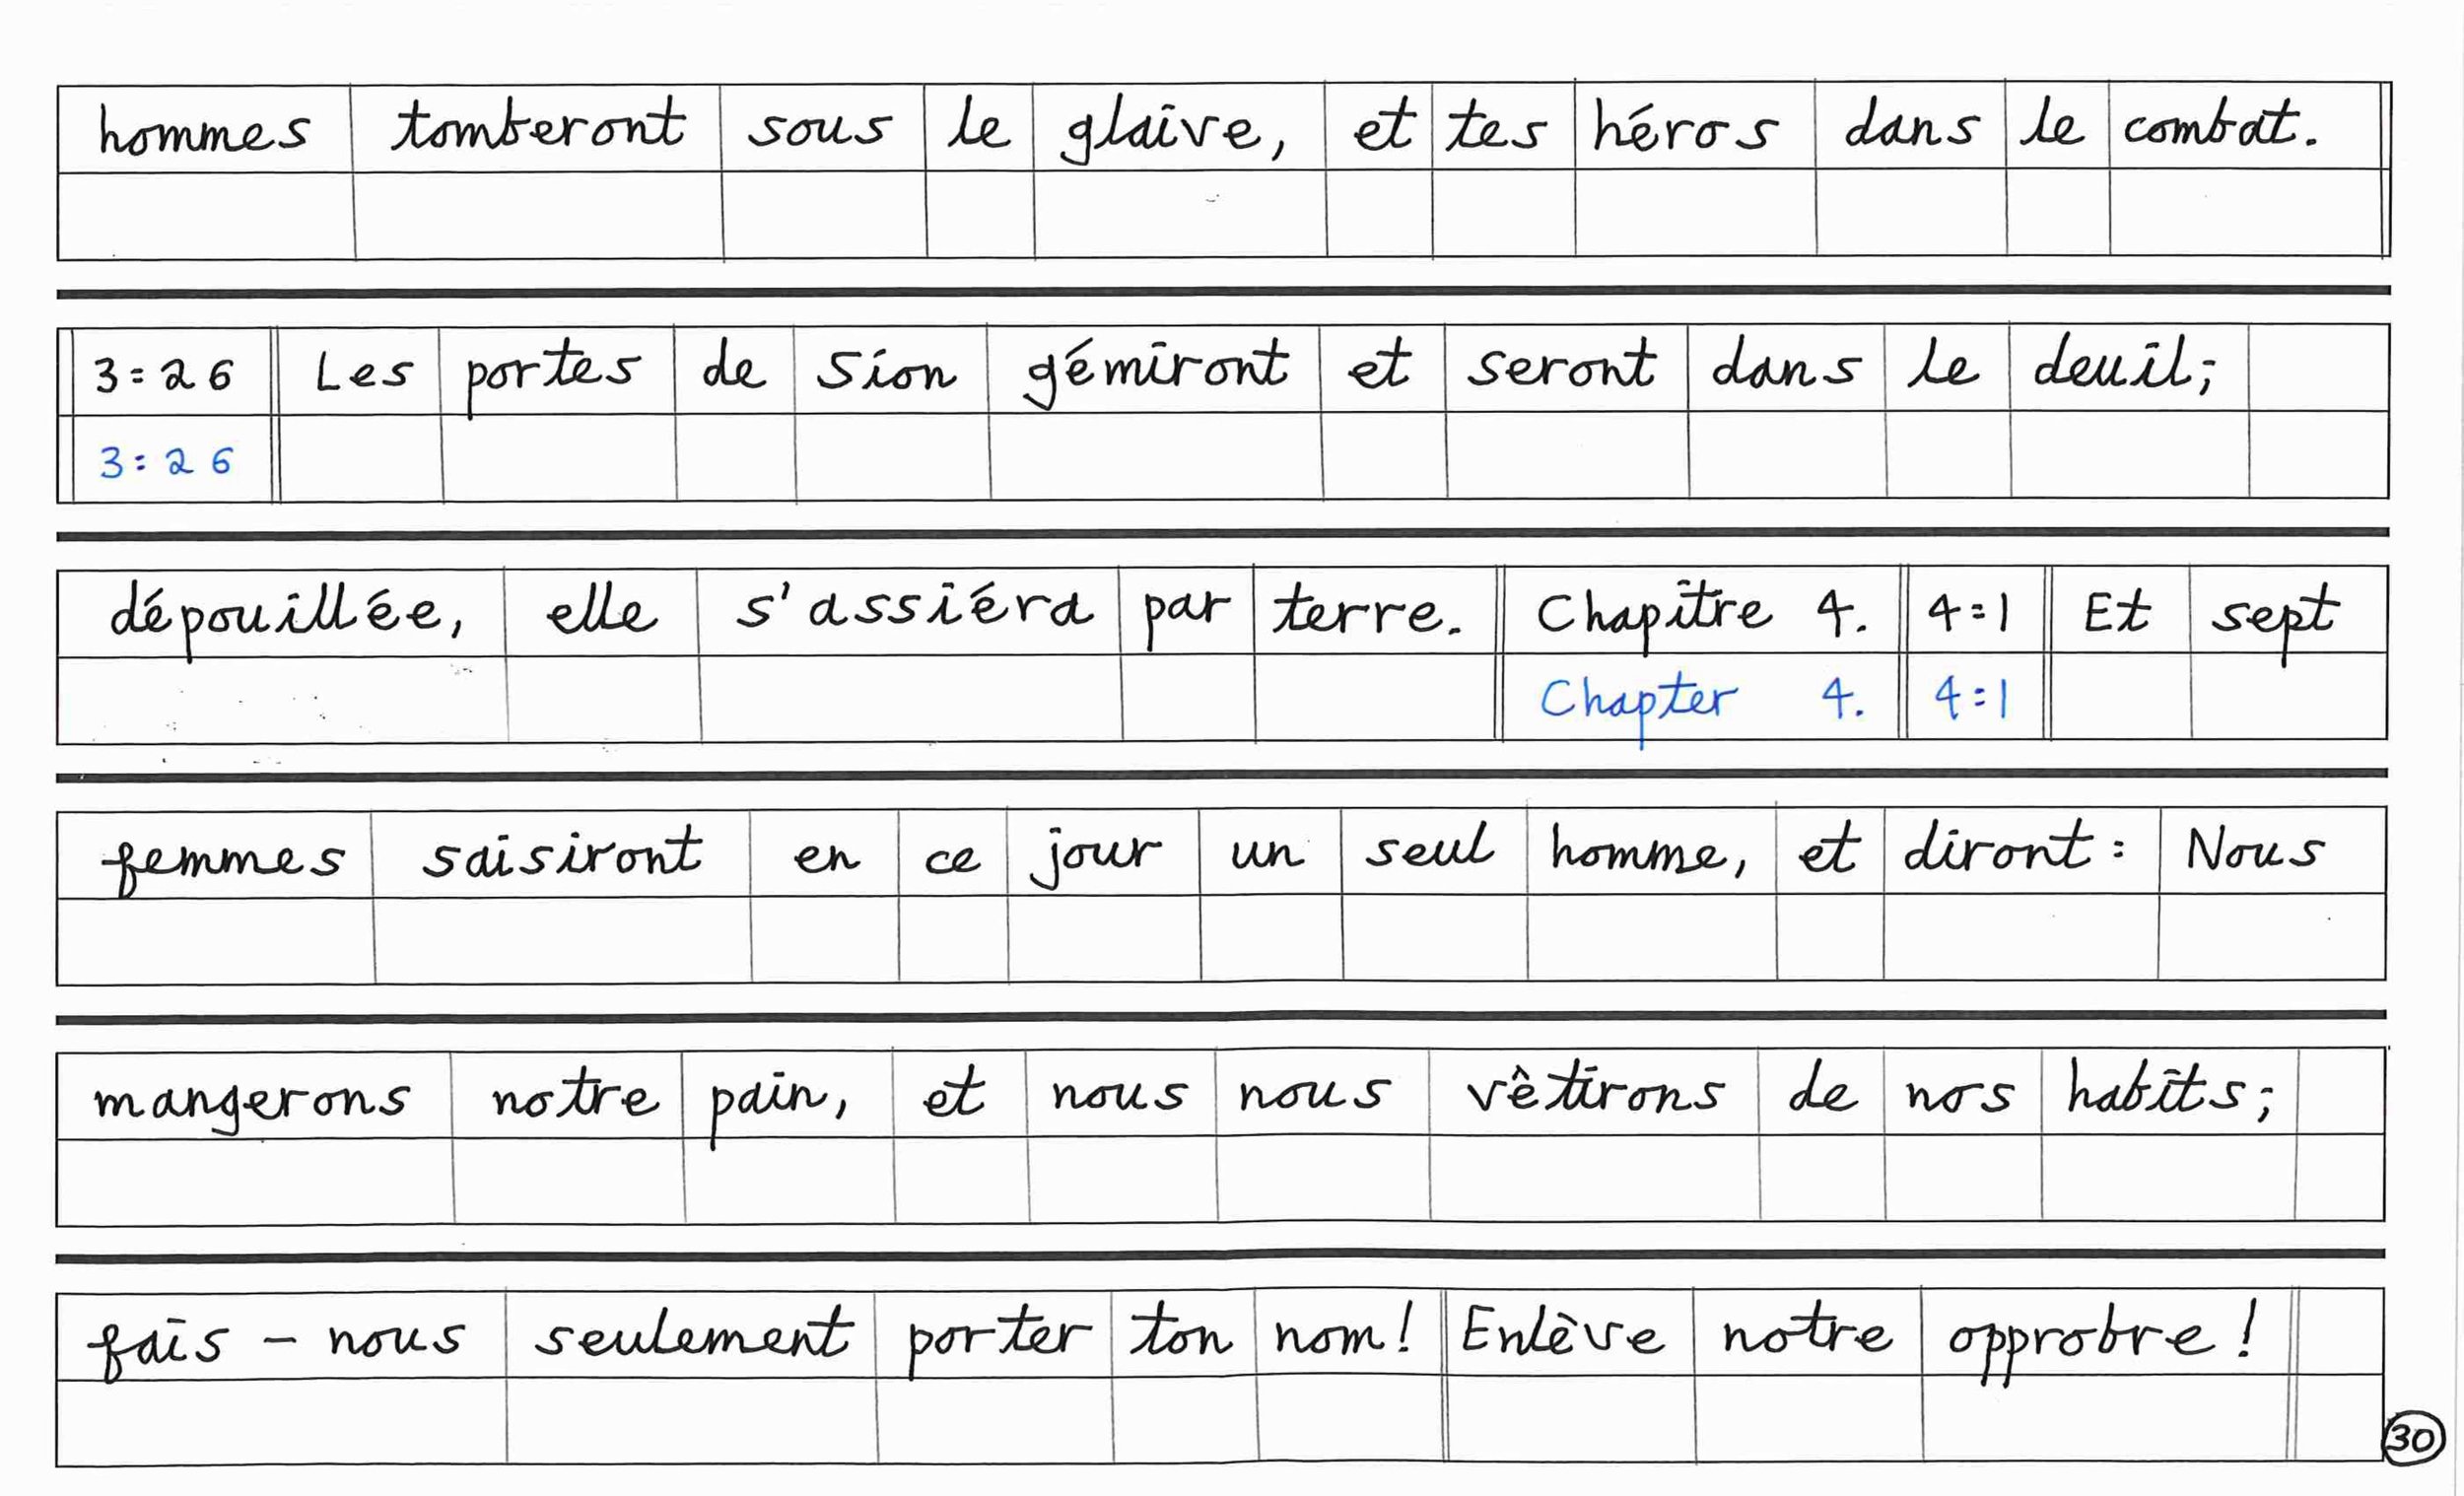 hommes tomberont sous le glaive, et tes héros dans le combat.
3:26 Les portes de Sion gémiront et seront dans le deuil;
3:26
dépouillée, elle s'assiéra par terre. Chapitre 4. 4:1 Et sept
Chapter 4. 4:1
femmes saisiront en ce jour un seul homme, et diront: Nous
mangerons notre pain, et nous nous vêtirons de nos habits;
fais-nous seulement porter ton nom! Enlève notre opprobre!
30